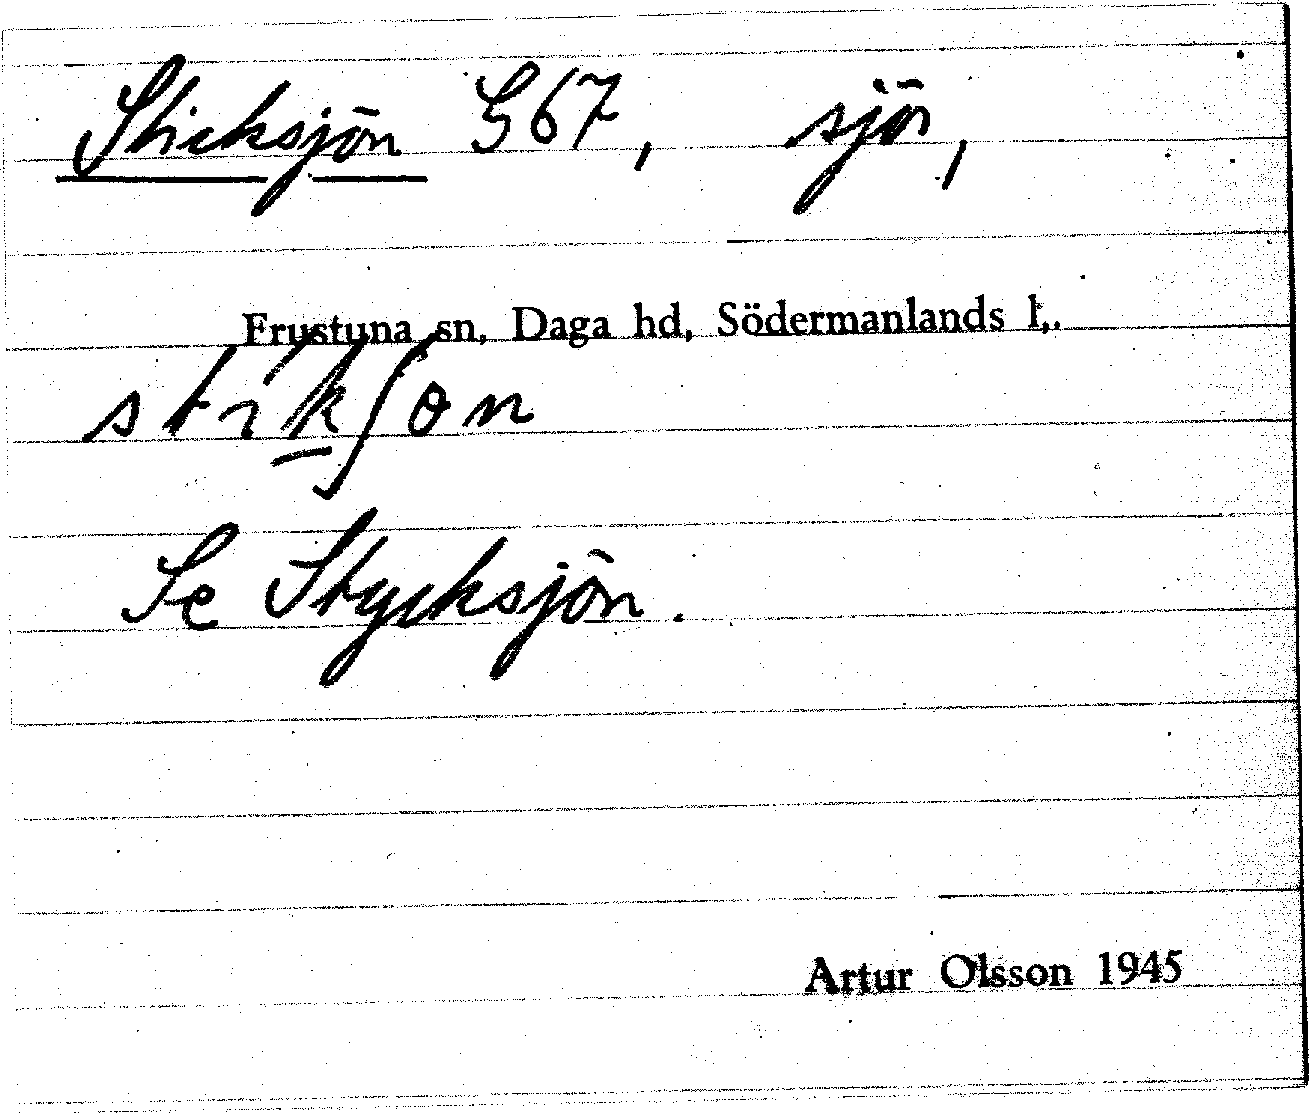 Sticksjön G67, sjö,
Frustuna sn, Daga hd, Södermanlands l,.
Se Stycksjön.
Artur Olsson 1945